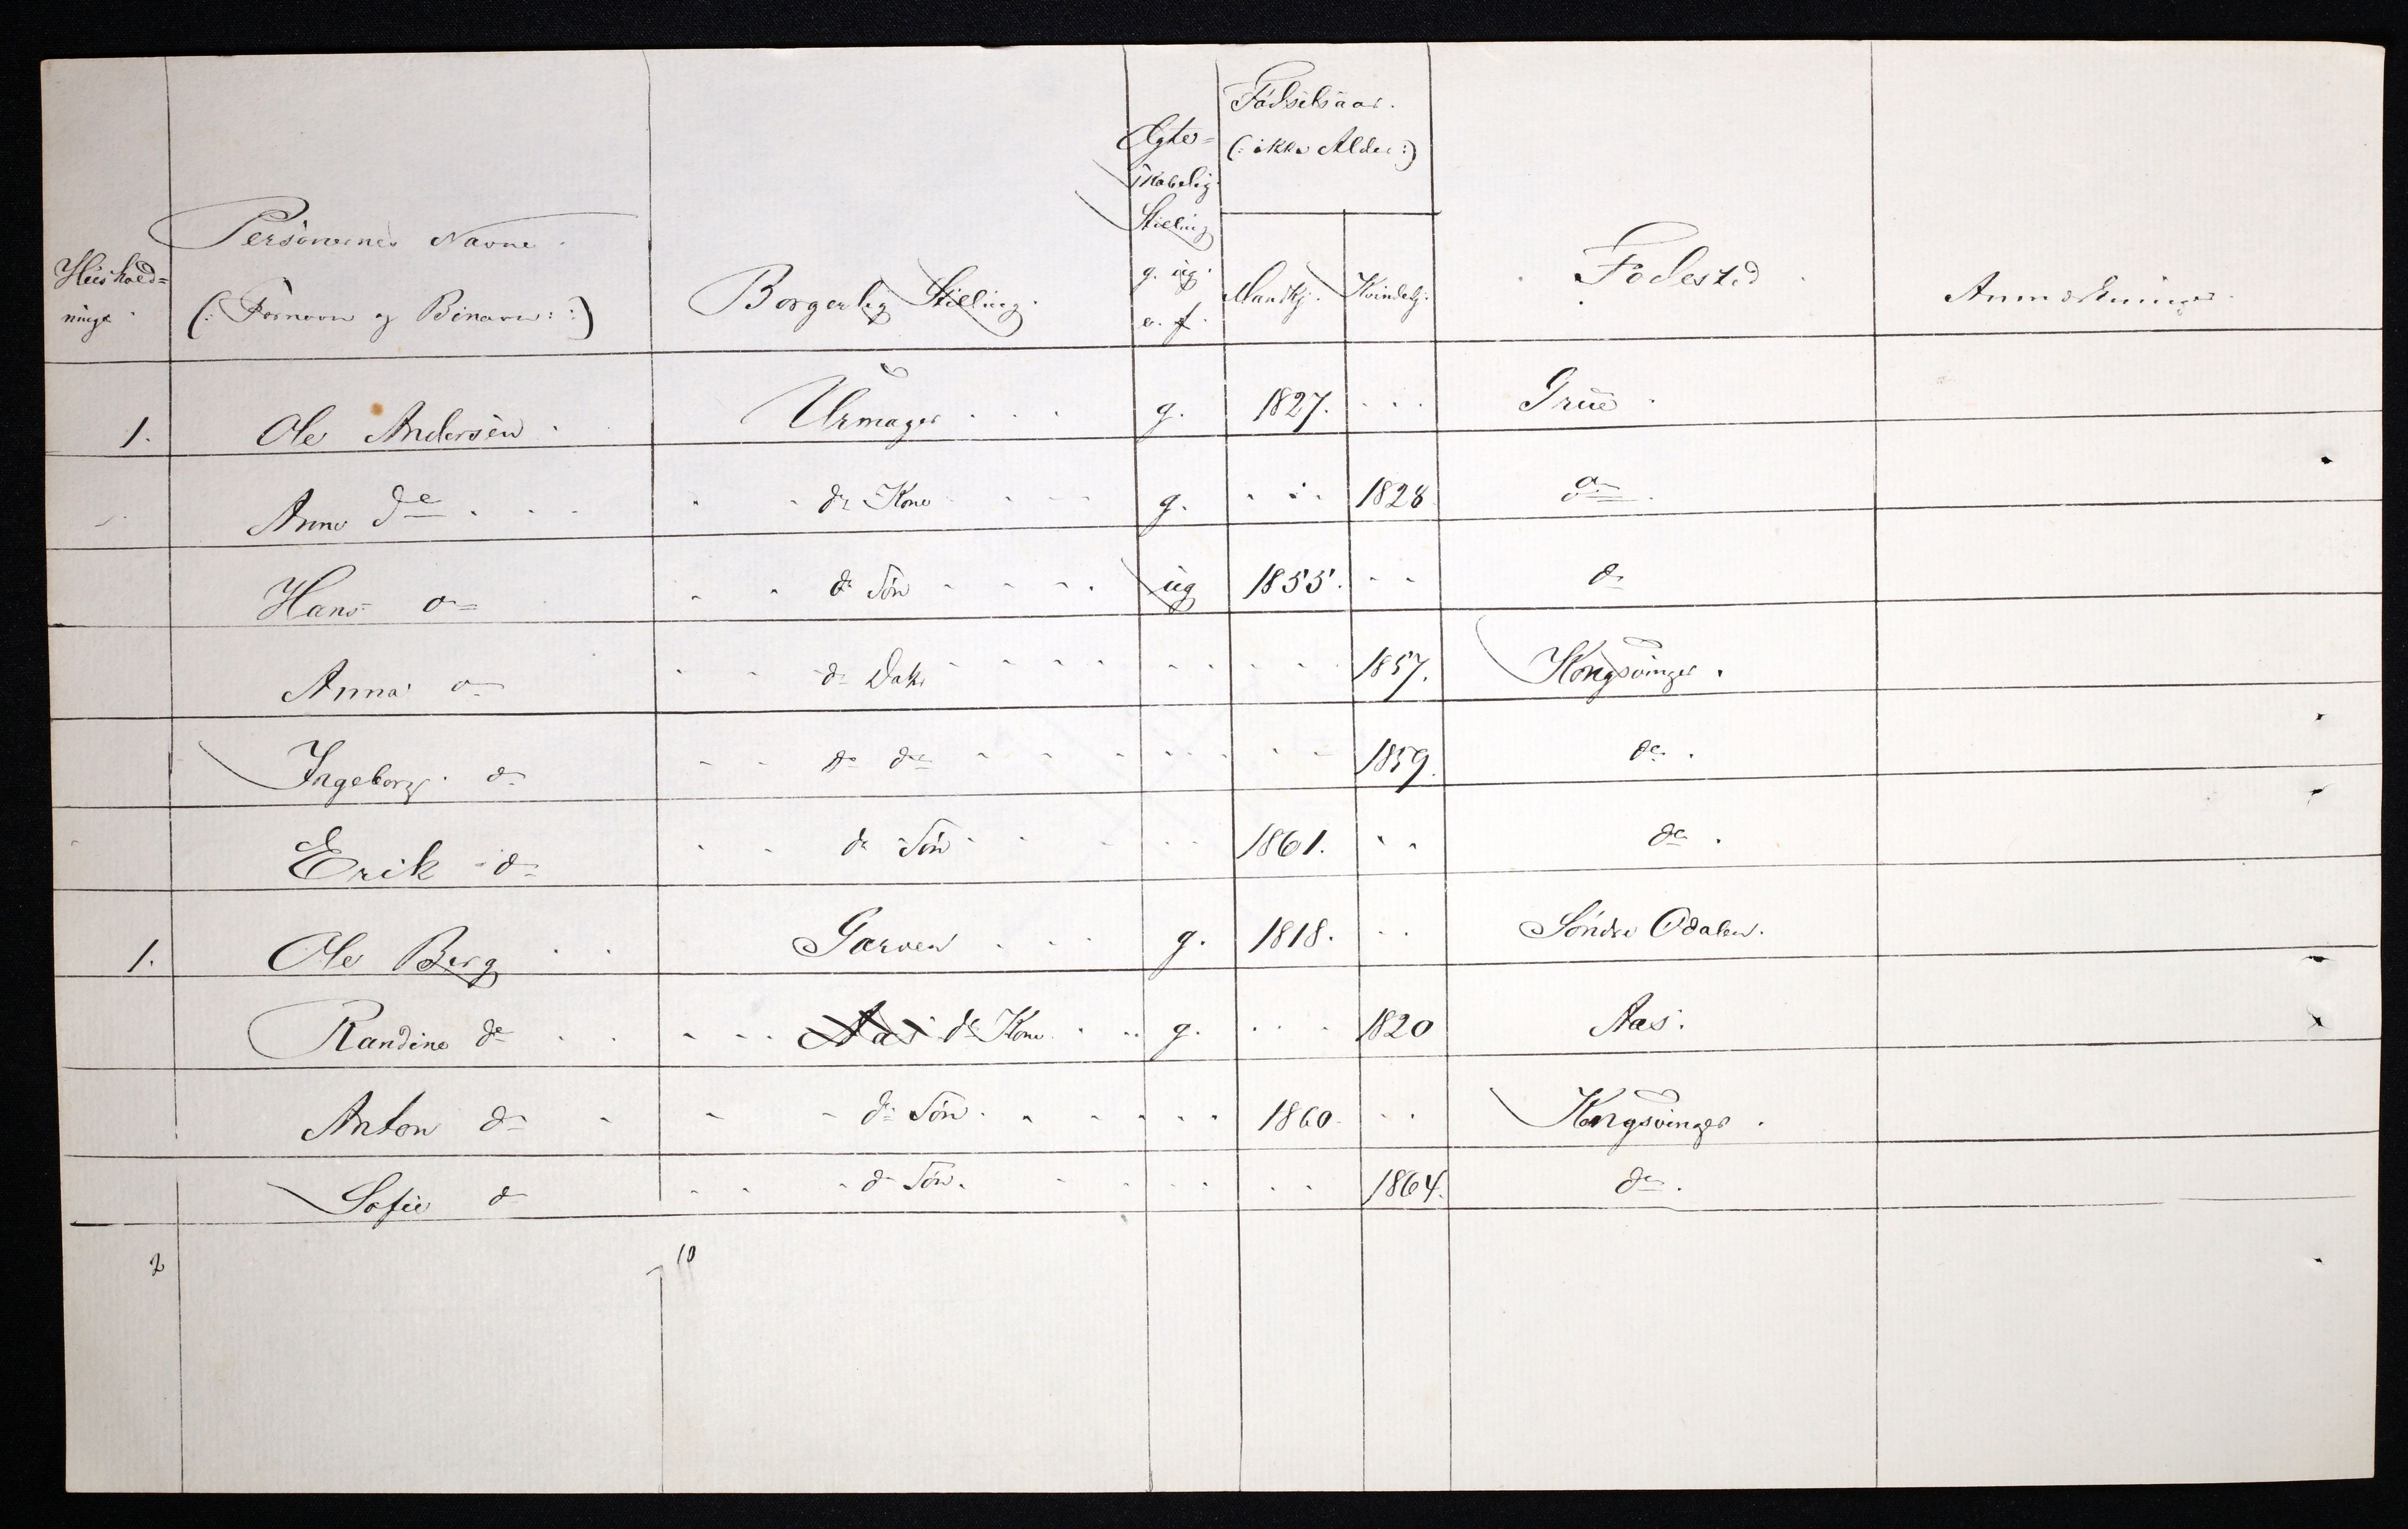 Huushold=
ninge.
Personernes Navne.
(: Fornavn og Binavn: :)
Borgerlig Stilling.
Ægte=
skabelig
Stilling
g. ug.
e. f.
Födselsaar.
(: ikke Alder :)
Mandkj. Kvindekj.
Fodested
Anmærkninger.
1. Ole Andersen. Urmager g. 1827. Grue.
Anne do do Kone g. 1828 do
Hans do do Sön ug 1855. do
Anna do do Datr 1857. Kongsvinger.
Ingeborg do do do 1859. do.
Erik do do Sön 1861. do.
1. Ole Berg Garver g. 1818. Söndre Odalen.
Randine do do Kone g. 1820 Aas.
Anton do do Sön. 1860. Kongsvinger.
Sofie do do Sön. 1864. do.
2 10